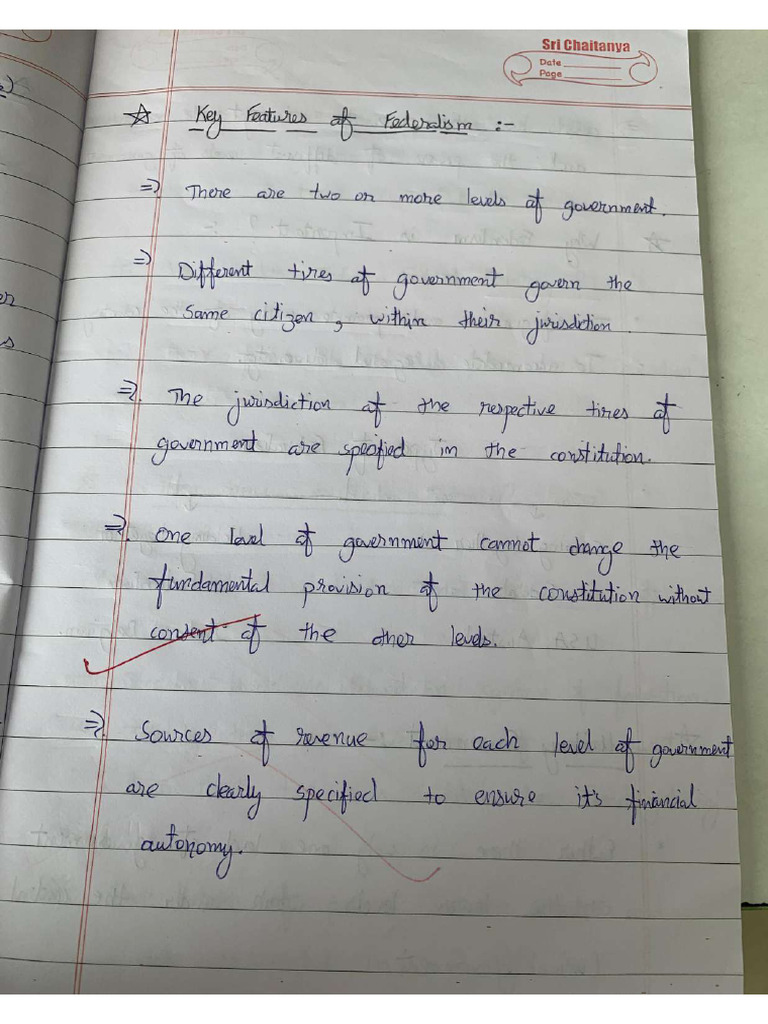 Sri Chaitanya
Date
Page
☆ Key Features of Federalism :-
⇒ There are two or more levels of government.
⇒ Different tires of government govern the
same citizen, within their jurisdiction.
⇒ The jurisdiction of the respective tires of
government are specified in the constitution.
⇒ One level of government cannot change the
fundamental provision of the constitution without
consent of the other levels.
⇒ Sources of revenue for each level of government
are clearly specified to ensure it's financial
autonomy.